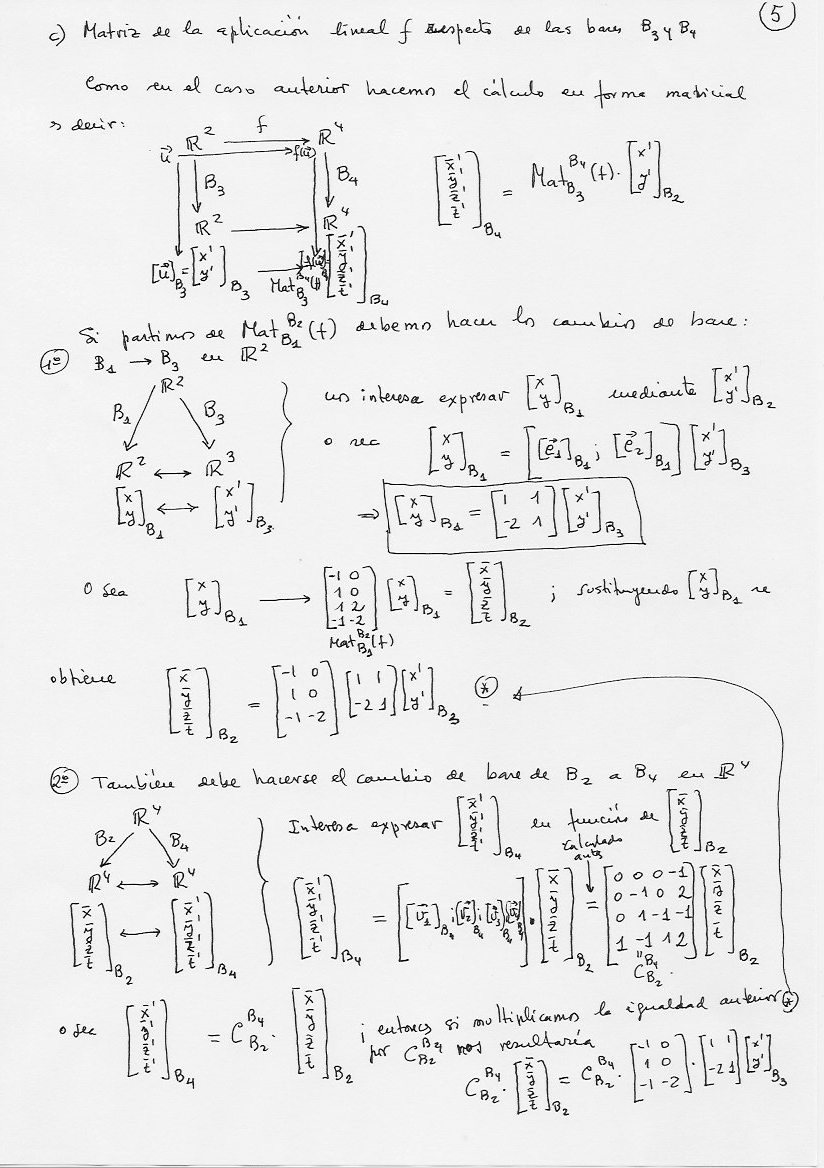 5
c) Matriz de la aplicación lineal f respecto de las bases B₃ y B₄
Como en el caso anterior hacemos el cálculo en forma matricial
es decir:
ℝ² f ℝ⁴
u⃗ f(u⃗)
B₃ B₄
ℝ² ℝ⁴
[u⃗]_B₃ = [x' y']_B₃ Mat_B₃^B₄(f) [x̄' ȳ' z̄' t̄']_B₄
[x̄' ȳ' z̄' t̄']_B₄ = Mat_B₃^B₄(f) · [x' y']_B₂
Si partimos de Mat_B₁^B₂(f) debemos hacer los cambios de base:
1º B₁ → B₃ en ℝ²
ℝ²
B₁ B₃
ℝ² ↔ ℝ³
[x y]_B₁ ↔ [x' y']_B₃
nos interesa expresar [x y]_B₁ mediante [x' y']_B₂
o sea [x y]_B₁ = [[e⃗₁]_B₁ ; [e⃗₂]_B₁] [x' y']_B₃
⇒ [x y]_B₁ = [1 1; -2 1] [x' y']_B₃
O sea [x y]_B₁ → [-1 0; 1 0; 1 2; -1 -2] [x y]_B₁ = [x̄ ȳ z̄ t̄]_B₂ ; sustituyendo [x y]_B₁ se
Mat_B₁^B₂(f)
obtiene [x̄ ȳ z̄ t̄]_B₂ = [-1 0; 1 0; -1 -2] [1 1; -2 1] [x' y']_B₃ *
2º También debe hacerse el cambio de base de B₂ a B₄ en ℝ⁴
ℝ⁴
B₂ B₄
ℝ⁴ ↔ ℝ⁴
[x̄ ȳ z̄ t̄]_B₂ ↔ [x̄' ȳ' z̄' t̄']_B₄
Interesa expresar [x̄' ȳ' z̄' t̄']_B₄ en función de [x̄ ȳ z̄ t̄]_B₂
calculado
antes
[x̄' ȳ' z̄' t̄']_B₄ = [[v⃗₁]_B₄ ; [v⃗₂]_B₄ ; [v⃗₃]_B₄ [v⃗₄]_B₄] · [x̄ ȳ z̄ t̄]_B₂ = [0 0 0 -1; 0 -1 0 2; 0 1 -1 -1; 1 -1 1 2] [x̄ ȳ z̄ t̄]_B₂
C_B₂^B₄
o sea [x̄' ȳ' z̄' t̄']_B₄ = C_B₂^B₄ · [x̄ ȳ z̄ t̄]_B₂ ; entonces si multiplicamos la igualdad anterior *
por C_B₂^B₄ nos resultaría
C_B₂^B₄ · [x̄ ȳ z̄ t̄]_B₂ = C_B₂^B₄ · [-1 0; 1 0; -1 -2] · [1 1; -2 1] [x' y']_B₃